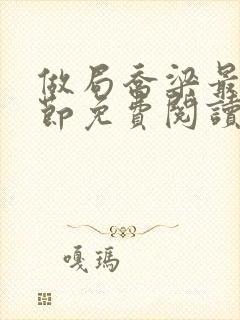 做局喬梁最
節免費閱讀
嘎瑪